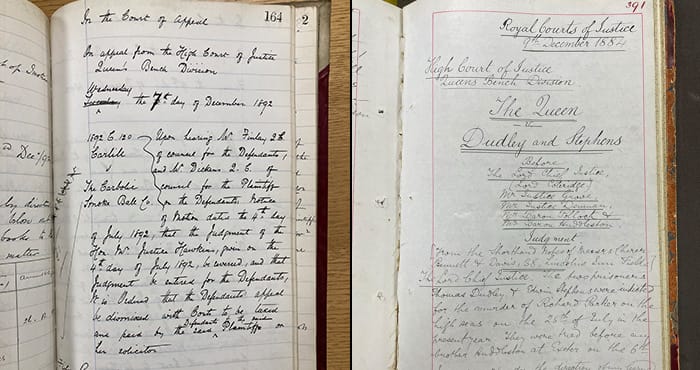 164
In the Court of Appeal
On appeal from the High Court of Justice
Queen's Bench Division
Wednesday
the 7th day of December 1892
1892 C. 120
Carlill
v
The Carbolic
Smoke Ball Co.
Upon hearing Mr. Finlay Q. C.
of counsel for the Defendants,
and Mr Dickens Q. C. of
counsel for the Plaintiff
on the Defendants Notice
of Motion dated the 4th day
of July 1892, that the judgment of the
Hon Mr. Justice Hawkins, given on the
4th day of July 1892, be reversed, and that
judgment be entered for the Defendants,
It is Ordered that the Defendants appeal
be dismissed with Costs to be taxed
and paid by the said Defendants to the
Plaintiff or
her solicitor
2
391
Royal Courts of Justice
9th December 1884
High Court of Justice
Queens Bench Division
The Queen
v
Dudley and Stephens
Before
The Lord Chief Justice,
(Lord Coleridge)
Mr Justice Grove
Mr Justice Denman,
Mr Baron Pollock &
Mr Baron Huddleston
Judgment
From the Shorthand Notes of Messrs
Lincolns Inn Fields
The Lord Chf Justice The two prisoners
Thomas Dudley & Edwin Stephens were indicted
for the murder of Richard Parker on the
high seas on the 25th of July in the
present year. They were tried before my
brother Huddleston at Exeter on the 6th